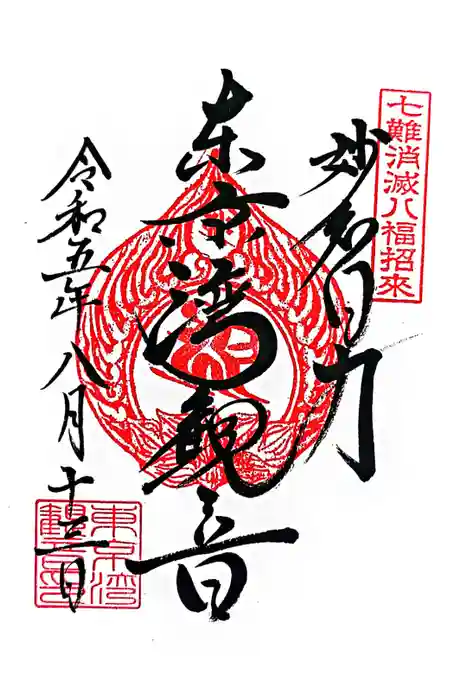 七難消滅八福招來
妙智力
東京湾観音
令和五年八月十三日
東京湾
観音印